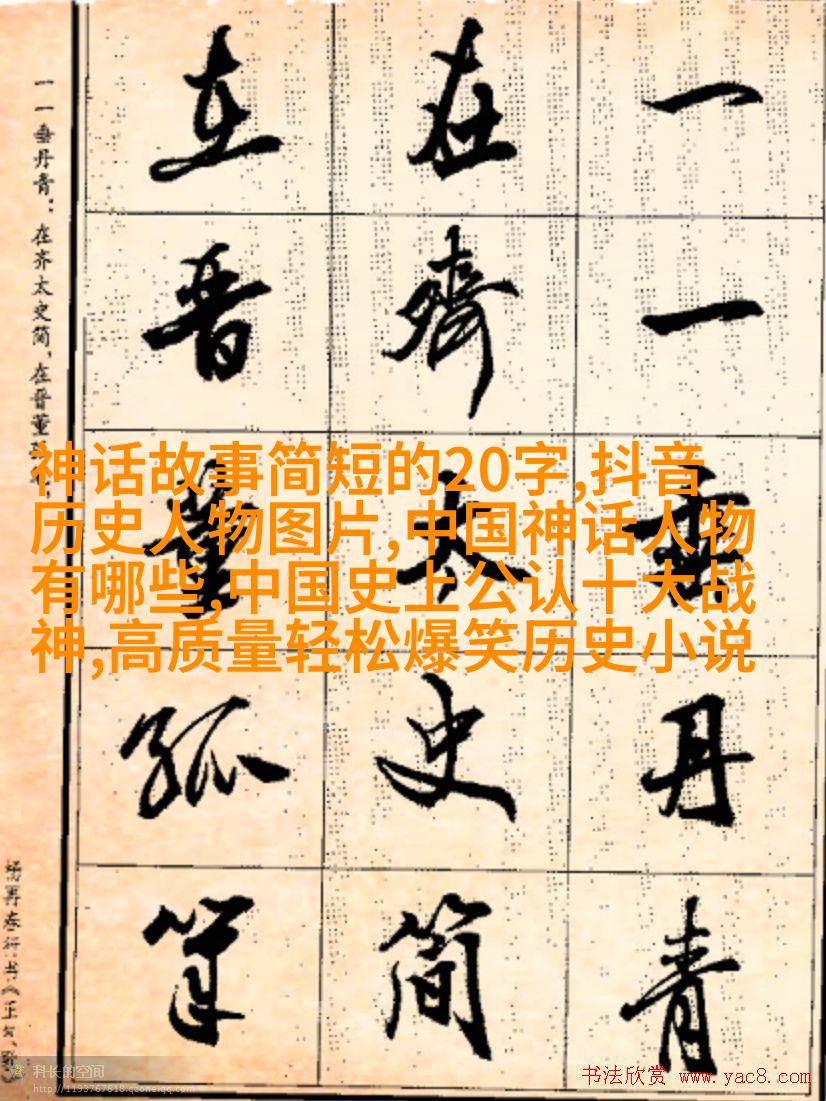 一一垂丹青
在齊太史简
在晋董狐筆
一一垂丹青：在齐太史简，在晋董
杨再春行书《正气歌》
神话故事简短的20字,抖音
历史人物图片,中国神话人物
有哪些,中国史上公认十大战
神,高质量轻松爆笑历史小说
科长的空间
http://1193767618.qzone.qq.com
书法欣赏 www.yac8.com